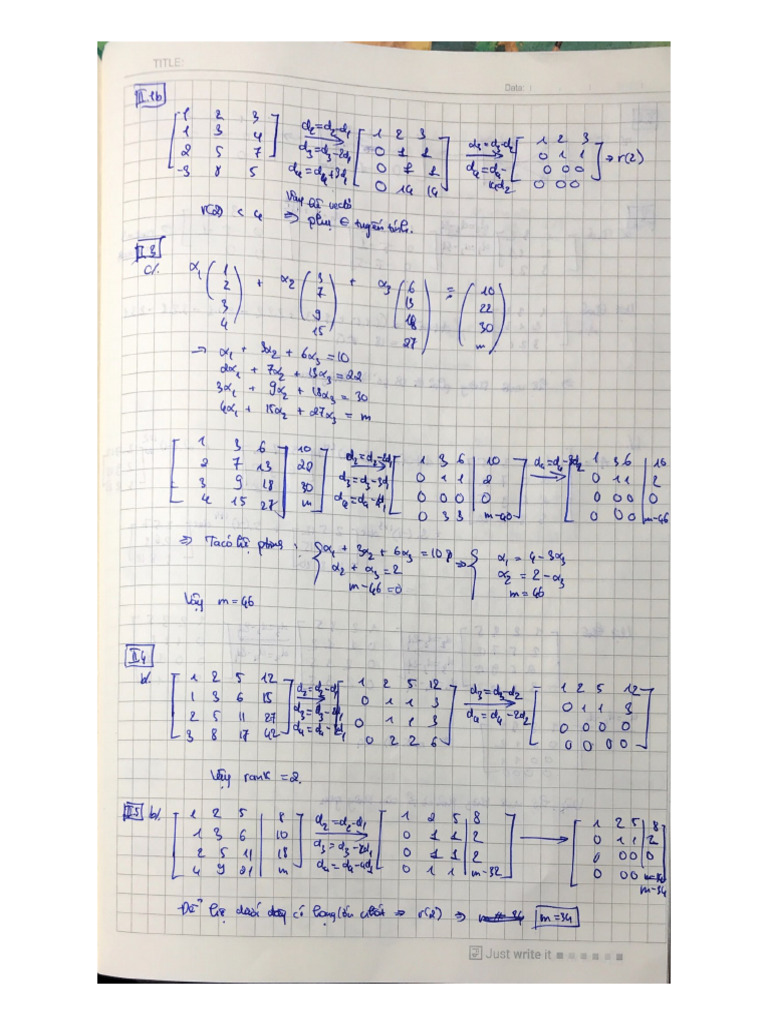 TITLE:
Data:
II.1b
[1 2 3; 1 3 4; 2 5 7; -3 8 5] d2=d2-d1, d3=d3-2d1, d4=d4+3d1 → [1 2 3; 0 1 1; 0 1 1; 0 14 14] d3=d3-d2, d4=d4-14d2 → [1 2 3; 0 1 1; 0 0 0; 0 0 0] → r(2)
Vậy hệ vectơ
< 4 ⇒ phụ ∈ tuyến tính.
II.3
c/. α1(1 2 3 4) + α2(3 7 9 15) + α3(6 13 18 27) = (10 22 30 m)
→ α1 + 3α2 + 6α3 = 10
2α1 + 7α2 + 13α3 = 22
3α1 + 9α2 + 18α3 = 30
4α1 + 15α2 + 27α3 = m
[1 3 6 | 10; 2 7 13 | 22; 3 9 18 | 30; 4 15 27 | m] d2=d2-2d1, d3=d3-3d1, d4=d4-4d1 → [1 3 6 | 10; 0 1 1 | 2; 0 0 0 | 0; 0 3 3 | m-40] d4=d4-3d2 → [1 3 6 | 10; 0 1 1 | 2; 0 0 0 | 0; 0 0 0 | m-46]
⇒ Ta có hệ : { α1 + 3α2 + 6α3 = 10; α2 + α3 = 2; m-46=0 ⇒ { α1 = 4-3α3; α2 = 2-α3; m = 46
Vậy m=46
II.4
[1 2 5 12; 1 3 6 15; 2 5 11 27; 3 8 17 42] d2=d2-d1, d3=d3-2d1, d4=d4-3d1 → [1 2 5 12; 0 1 1 3; 0 1 1 3; 0 2 2 6] d3=d3-d2, d4=d4-2d2 → [1 2 5 12; 0 1 1 3; 0 0 0 0; 0 0 0 0]
Vậy rank = 2.
II.5 b/. [1 2 5 | 8; 1 3 6 | 10; 2 5 11 | 18; 4 9 21 | m] d2=d2-d1, d3=d3-2d1, d4=d4-4d1 → [1 2 5 | 8; 0 1 1 | 2; 0 1 1 | 2; 0 1 1 | m-32] → [1 2 5 | 8; 0 1 1 | 2; 0 0 0 | 0; 0 0 0 | m-34]
Để hệ có hạng nhất ⇒ r(2) ⇒ m=34
Just write it